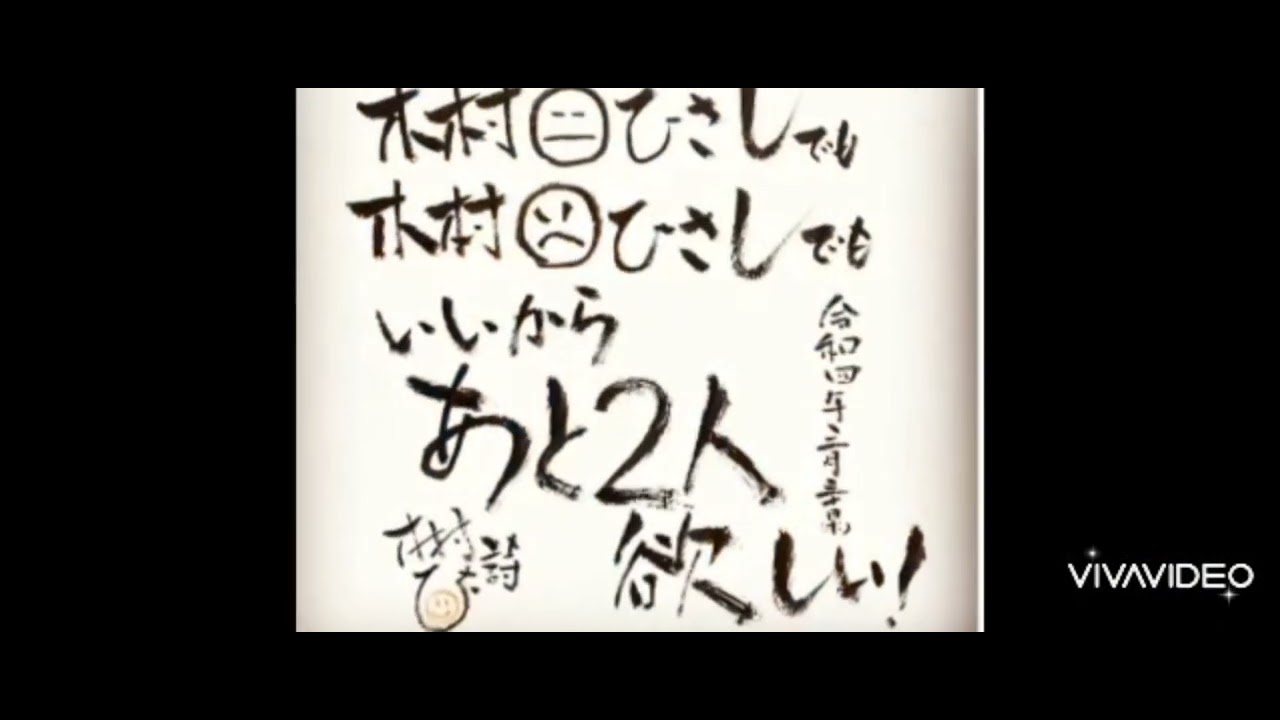 木村ひさしでも
木村ひさしでも
いいから
あと2人
欲しい!
令和四年
木村ひさ
VIVAVIDEO